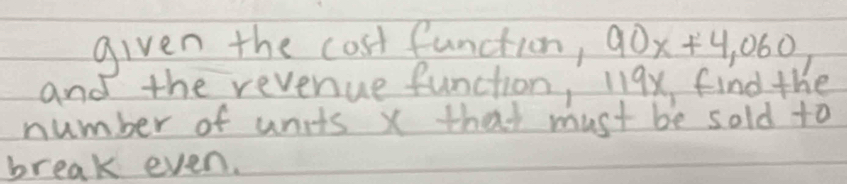 given the cost function, 90x + 4,060,
and the revenue function, 119x, find the
number of units x that must be sold to
break even.